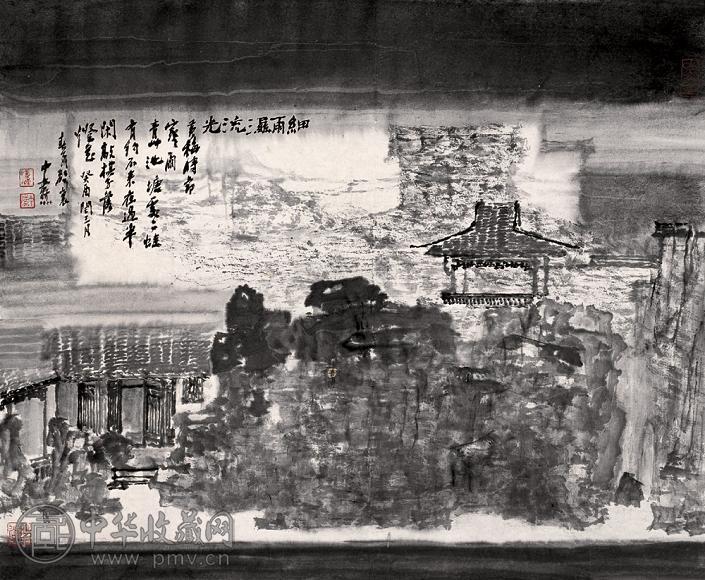 細雨濕流光
黃梅時節
家〻雨
青艸池塘處〻蛙
有約不来夜過半
閑敲棋子落
燈花 癸酉閏三月
中华收藏网
www.pmv.cn